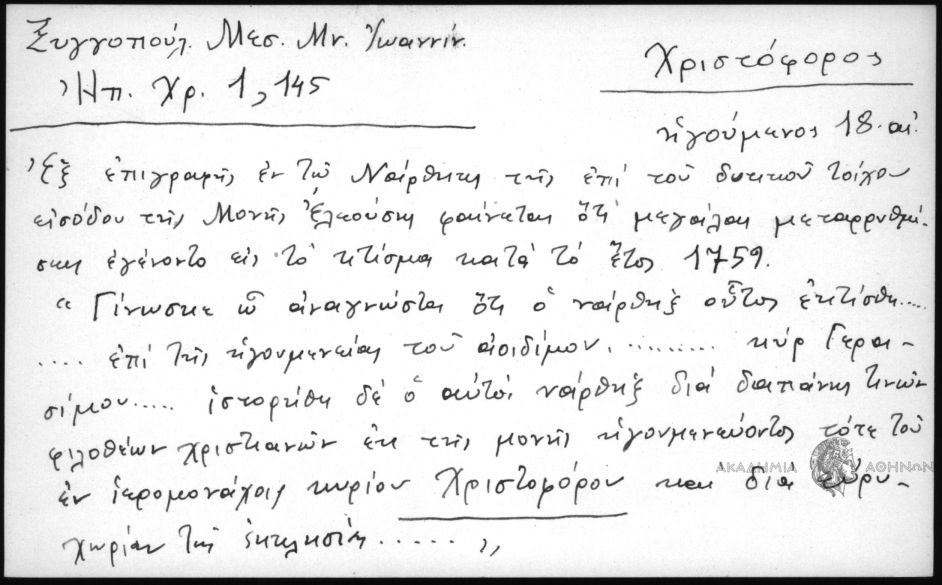 Ξυγγοπούλ. Μεσ. Μν. Ἰωαννίν.
Ἠπ. Χρ. 1, 145
Χριστόφορος
ἡγούμενος 18. αἰ.
Ἐξ ἐπιγραφῆς ἐν τῷ Νάρθηκι τῆς ἐπί τοῦ δυτικοῦ τοίχου
εἰσόδου τῆς Μονῆς Ἐλεούσης φαίνεται ὅτι μεγάλαι μεταρρυθμί-
σεις ἐγένοντο εἰς τὸ κτίσμα κατά τό ἔτος 1759.
“ Γίνωσκε ὦ ἀναγνῶστα ὅτι ὁ νάρθηξ οὗτος ἐκτίσθη.....
.... ἐπί τῆς ἡγουμενείας τοῦ ἀοιδίμου.......... κύρ Γερα-
σίμου..... ἱστορήθη δέ ὁ αὐτός νάρθηξ διά δαπάνης τινῶν
φιλοθέων χριστιανῶν ἐκ τῆς μονῆς ἡγουμενεύοντος τότε τοῦ
ἐν ἱερομονάχοις κυρίου Χριστοφόρου και διά εὐρυ-
χωρίαν τῆς ἐκκλησίας..... „
ΑΚΑΔΗΜΙΑ ΑΘΗΝΩΝ